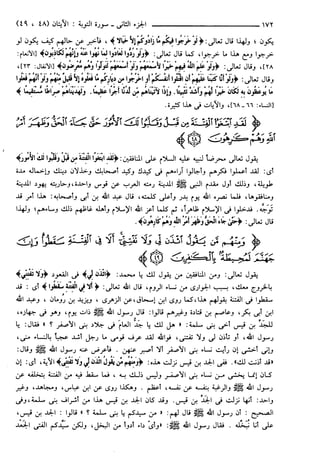 ١٧٢ الجزء الثاني ـ سورة التوبة : الآيتان (٤٨ ، ٤٩)
يكون ؛ ولهذا قال تعالى: ﴿لو خرجوا فيكم ما زادوكم إلا خبالا﴾ ، فأخبر عن حالهم كيف يكون لو
خرجوا ومع هذا ما خرجوا، كما قال تعالى: ﴿ولو ردوا لعادوا لما نهوا عنه وإنهم لكاذبون﴾ [الأنعام:
٢٨]، وقال تعالى: ﴿ولو علم الله فيهم خيرا لأسمعهم ولو أسمعهم لتولوا وهم معرضون﴾ [الأنفال: ٢٣]،
وقال تعالى: ﴿ولو أنا كتبنا عليهم أن اقتلوا أنفسكم أو اخرجوا من دياركم ما فعلوه إلا قليل منهم ولو أنهم فعلوا
ما يوعظون به لكان خيرا لهم وأشد تثبيتا. وإذا لآتيناهم من لدنا أجرا عظيما. ولهديناهم صراطا مستقيما﴾
[النساء: ٦٦ـ٦٨]، والآيات في هذا كثيرة.
لقد ابتغوا الفتنة من قبل وقلبوا لك الأمور حتى جاء الحق وظهر أمر
الله وهم كارهون
يقول تعالى محرضاً لنبيه عليه السلام على المنافقين: ﴿لقد ابتغوا الفتنة من قبل وقلبوا لك الأمور﴾
أي: لقد أعملوا فكرهم وأجالوا آراءهم في كيدك وكيد أصحابك وخذلان دينك وإخماله مدة
طويلة، وذلك أول مقدم النبي ﷺ المدينة رمته العرب عن قوس واحدة، وحاربته يهود المدينة
ومنافقوها، فلما نصره الله يوم بدر وأعلى كلمته، قال عبد الله بن أبي وأصحابه: هذا أمر قد
توجّه. فدخلوا في الإسلام ظاهراً، ثم كلما أعز الله الإسلام وأهله غاظهم ذلك وساءهم، ولهذا
قال تعالى: ﴿حتى جاء الحق وظهر أمر الله وهم كارهون﴾.
ومنهم من يقول ائذن لي ولا تفتني ألا في الفتنة سقطوا وإن
يقول تعالى: ومن المنافقين من يقول لك يا محمد: ﴿ائذن لي﴾ في القعود ﴿ولا تفتني﴾
بالخروج معك، بسبب الجواري من نساء الروم، قال الله تعالى: ﴿ألا في الفتنة سقطوا﴾ أي: قد
سقطوا في الفتنة بقولهم هذا، كما روى ابن إسحاق، عن الزهري ، ويزيد بن رومان ، وعبد الله
ابن أبي بكر، وعاصم بن قتادة وغيرهم قالوا: قال رسول الله ﷺ ذات يوم، وهو في جهازه،
للجدّ بن قيس أخي بني سلمة: «هل لك يا جدّ العام في جلاد بني الأصفر ؟ » فقال: يا
رسول الله، أو تأذن لي ولا تفتني، فوالله لقد عرف قومي ما رجل أشد عجباً بالنساء مني،
وإني أخشى إن رأيت نساء بني الأصفر ألا أصبر عنهن . فأعرض عنه رسول الله ﷺ وقال:
«قد أذنت لك». ففي الجد بن قيس نزلت هذه: ﴿ومنهم من يقول ائذن لي ولا تفتني﴾ الآية، أي: إن
كان إنما يخشى من نساء بني الأصفر وليس ذلك به ، فما سقط فيه من الفتنة بتخلفه عن
رسول الله ﷺ والرغبة بنفسه عن نفسه، أعظم . وهكذا روي عن ابن عباس، ومجاهد، وغير
واحد: أنها نزلت في الجد بن قيس. وقد كان الجد بن قيس هذا من أشراف بني سلمة، وفي
الصحيح : أن رسول الله ﷺ قال لهم: « من سيدكم يا بني سلمة ؟ » قالوا : الجد بن قيس،
على أنا نُبخّله . فقال رسول الله ﷺ: «وأيّ داء أدوأ من البخل، ولكن سيّدكم الفتى الجَعْد